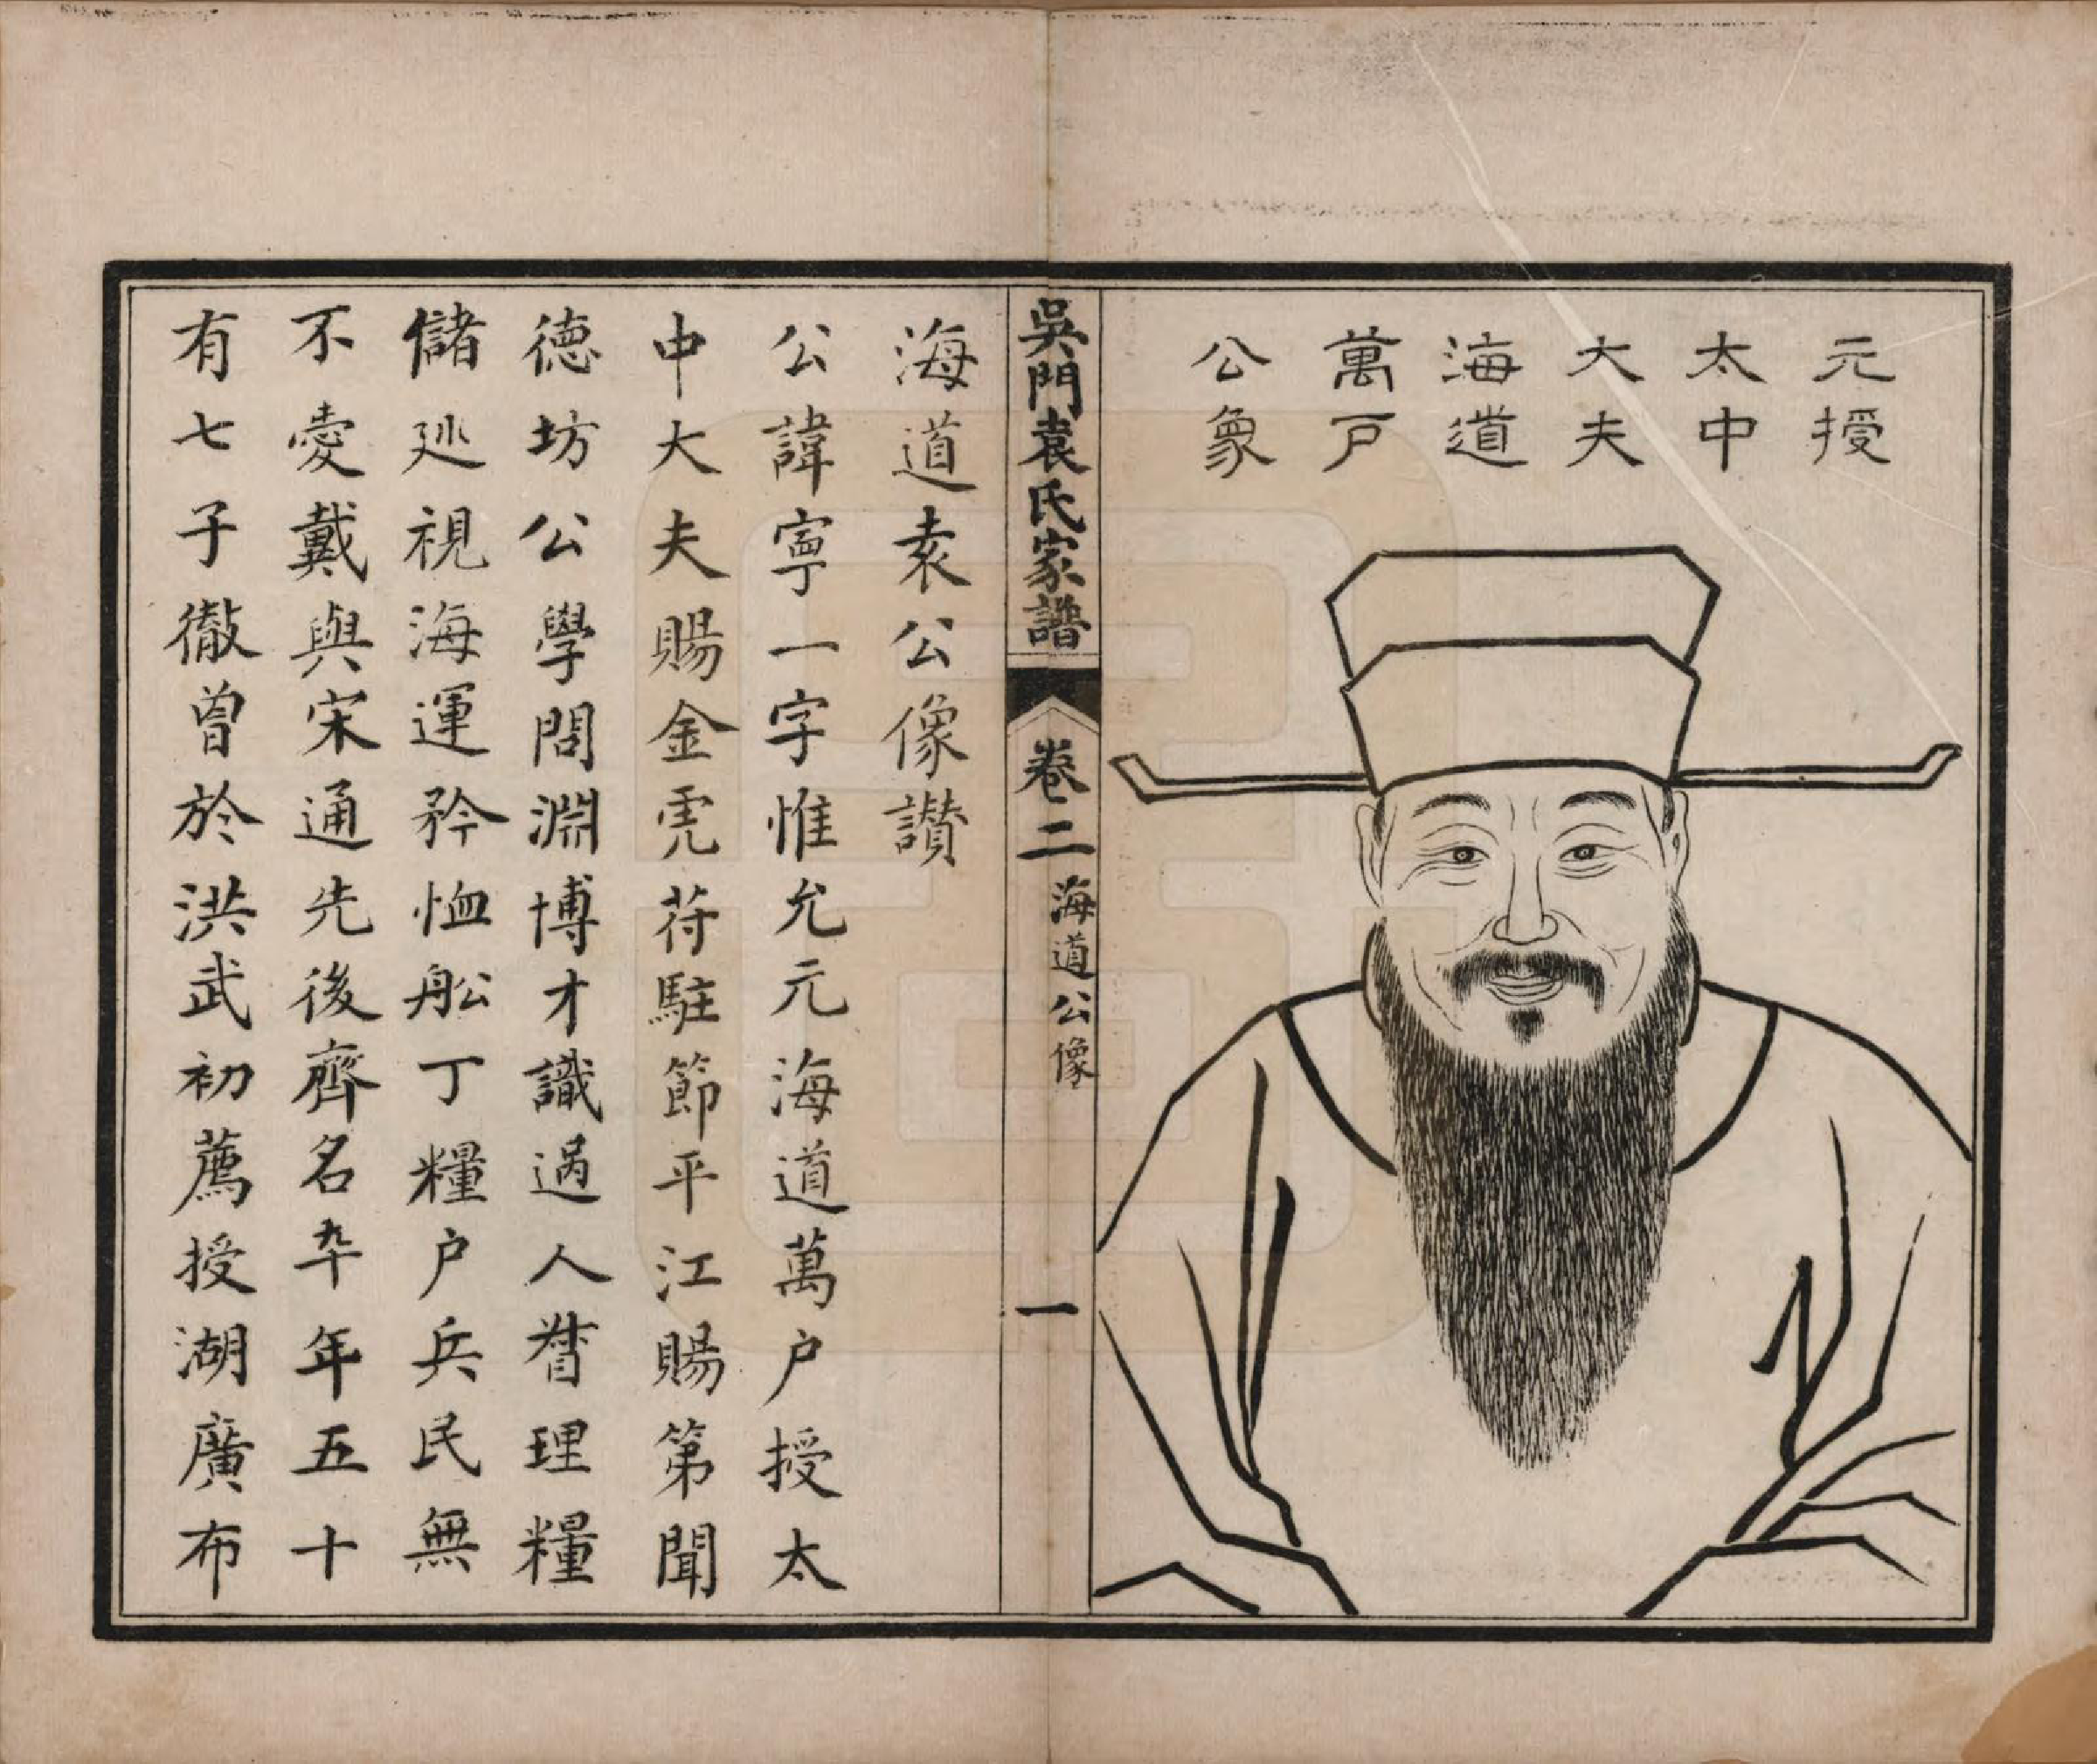 元授
太中
大夫
海道
萬戶
公象
吳門袁氏家譜
卷二
海道公像
一
海道袁公像讚
公諱寧一字惟允元海道萬户授太
中大夫賜金虎符駐節平江賜第聞
德坊公學問淵博才識過人督理糧
儲廵視海運矜恤舩丁糧户兵民無
不愛戴與宋通先後齊名卒年五十
有七子徹曾於洪武初薦授湖廣布